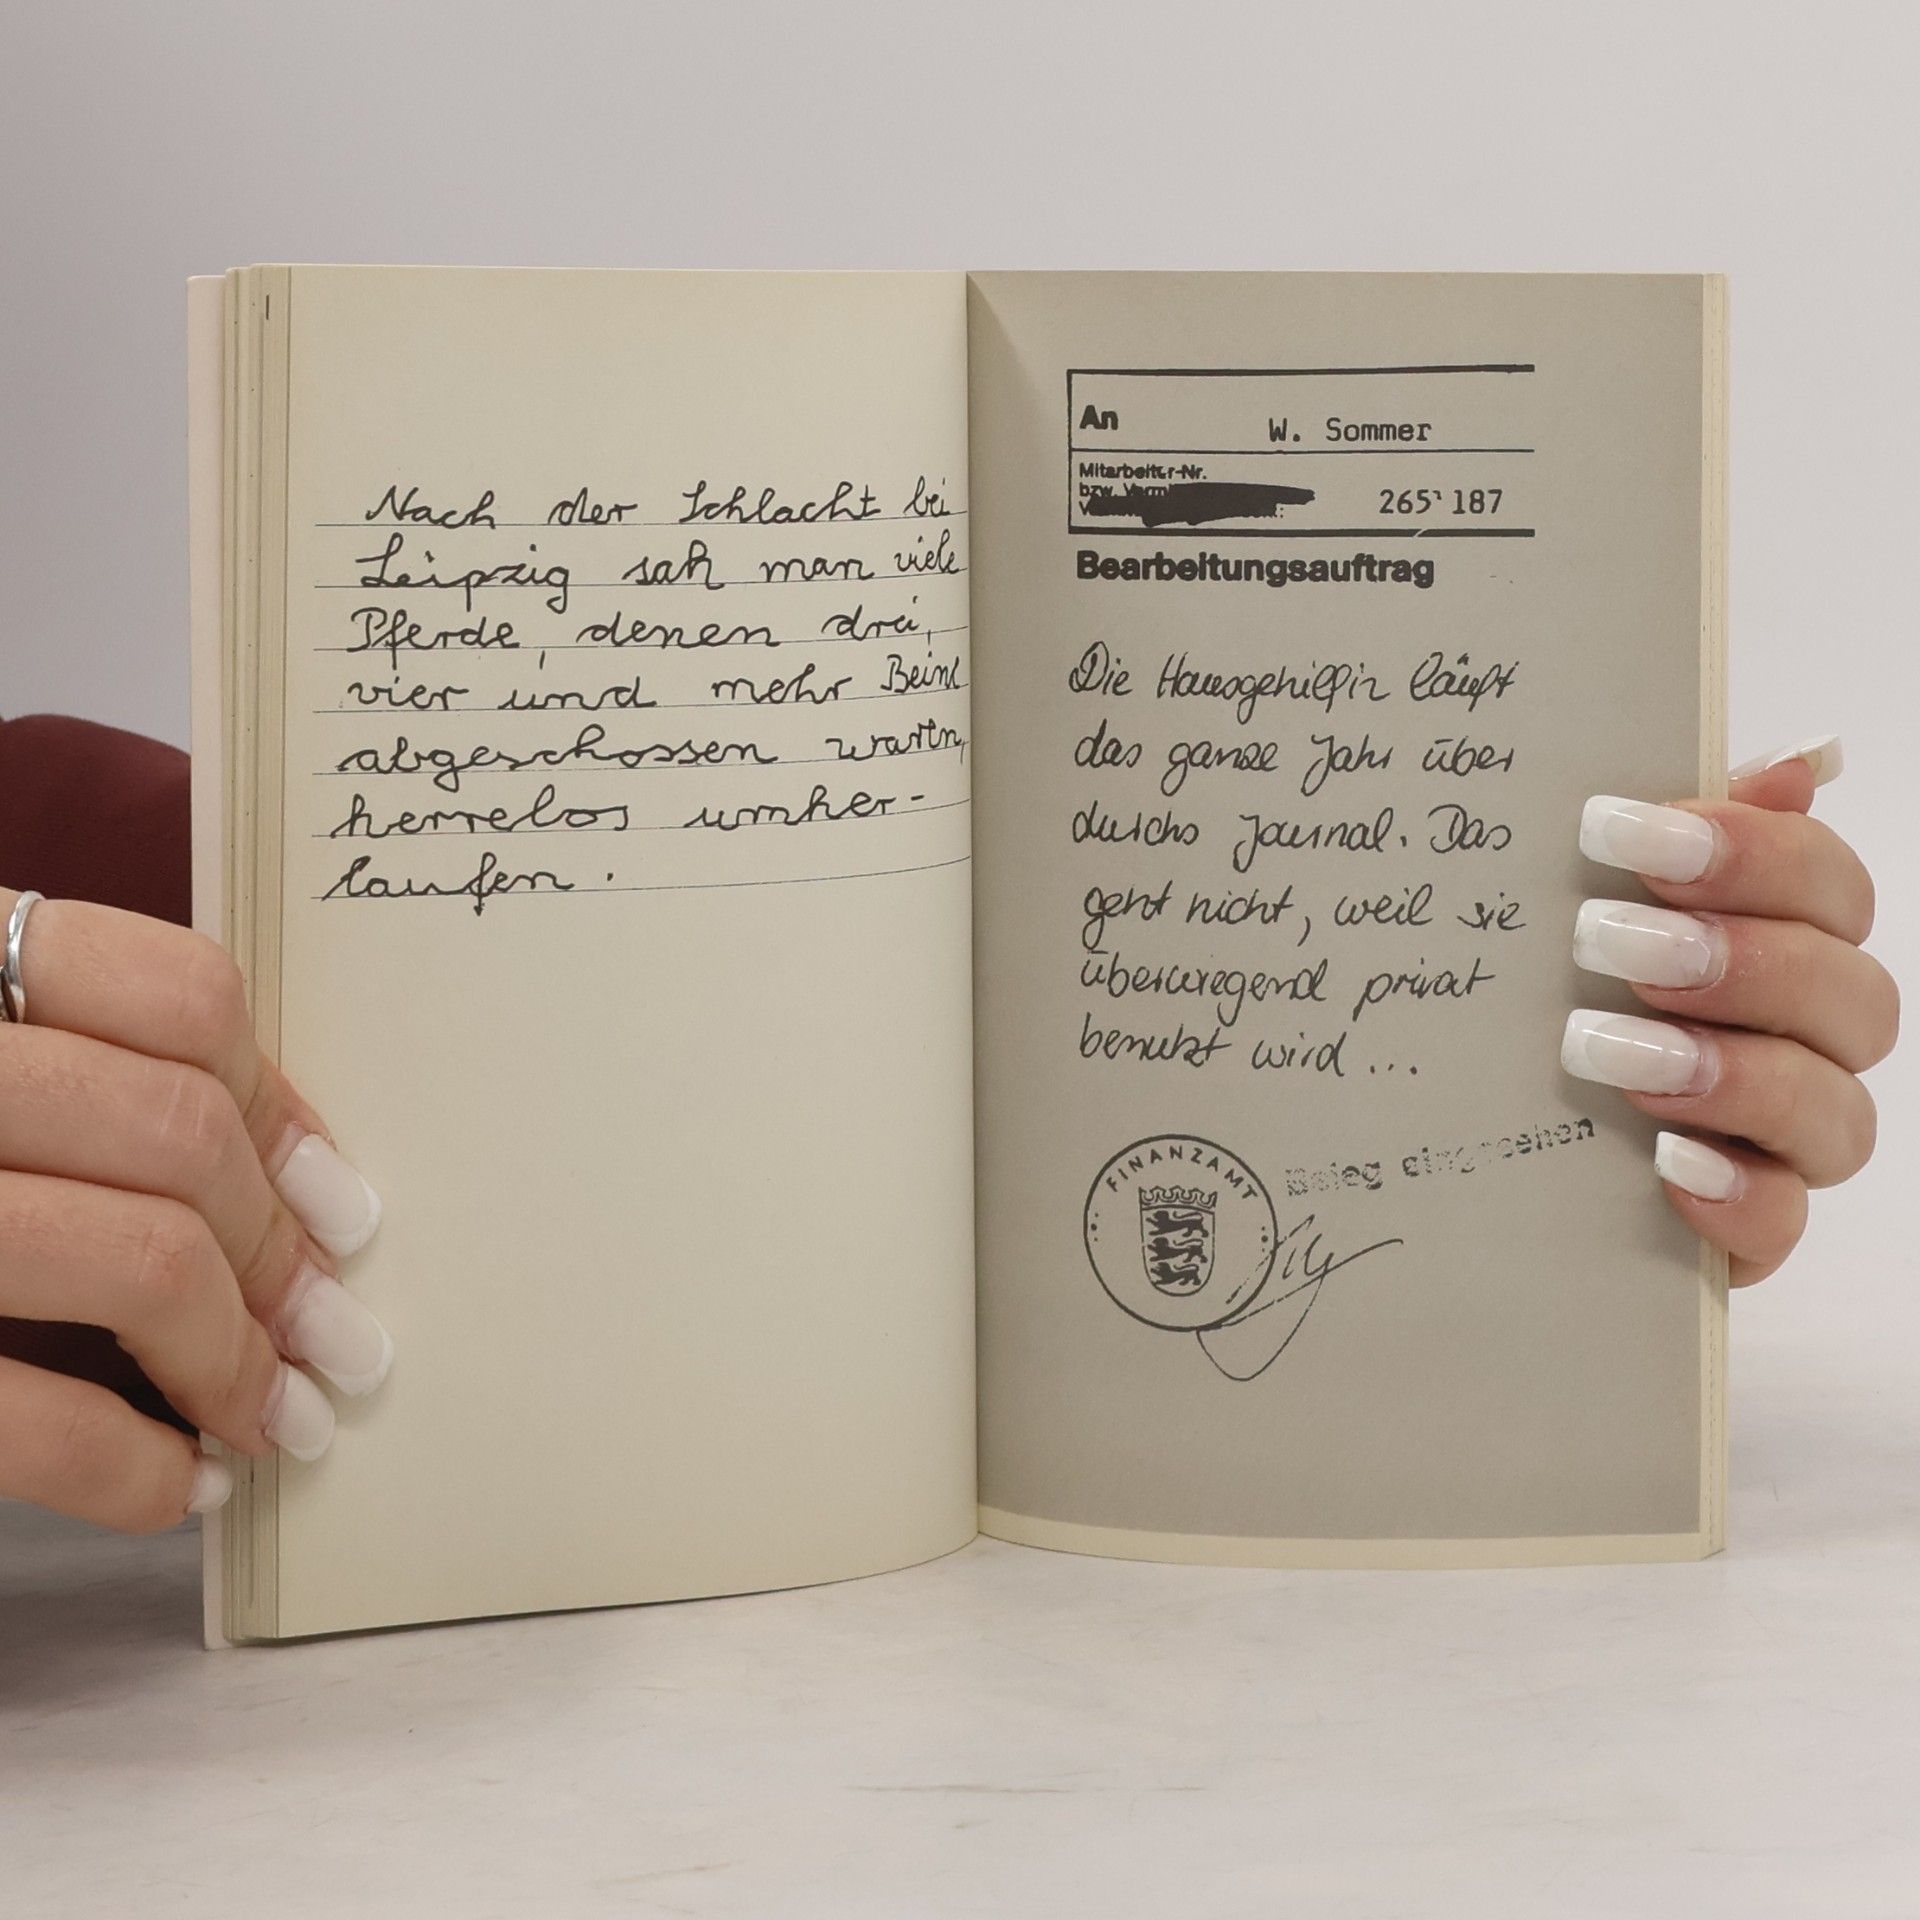 Nach der Schlacht bei
Leipzig sah man viele
Pferde, denen drei,
vier und mehr Beine
abgeschossen waren,
herrelos umher-
laufen.
An W. Sommer
Mitarbeiter-Nr.
bzw.
265 187
Bearbeitungsauftrag
Die Hausgehilfin läuft
das ganze Jahr über
durchs Journal. Das
geht nicht, weil sie
überwiegend privat
benutzt wird ...
FINANZAMT
Beleg eingesehen